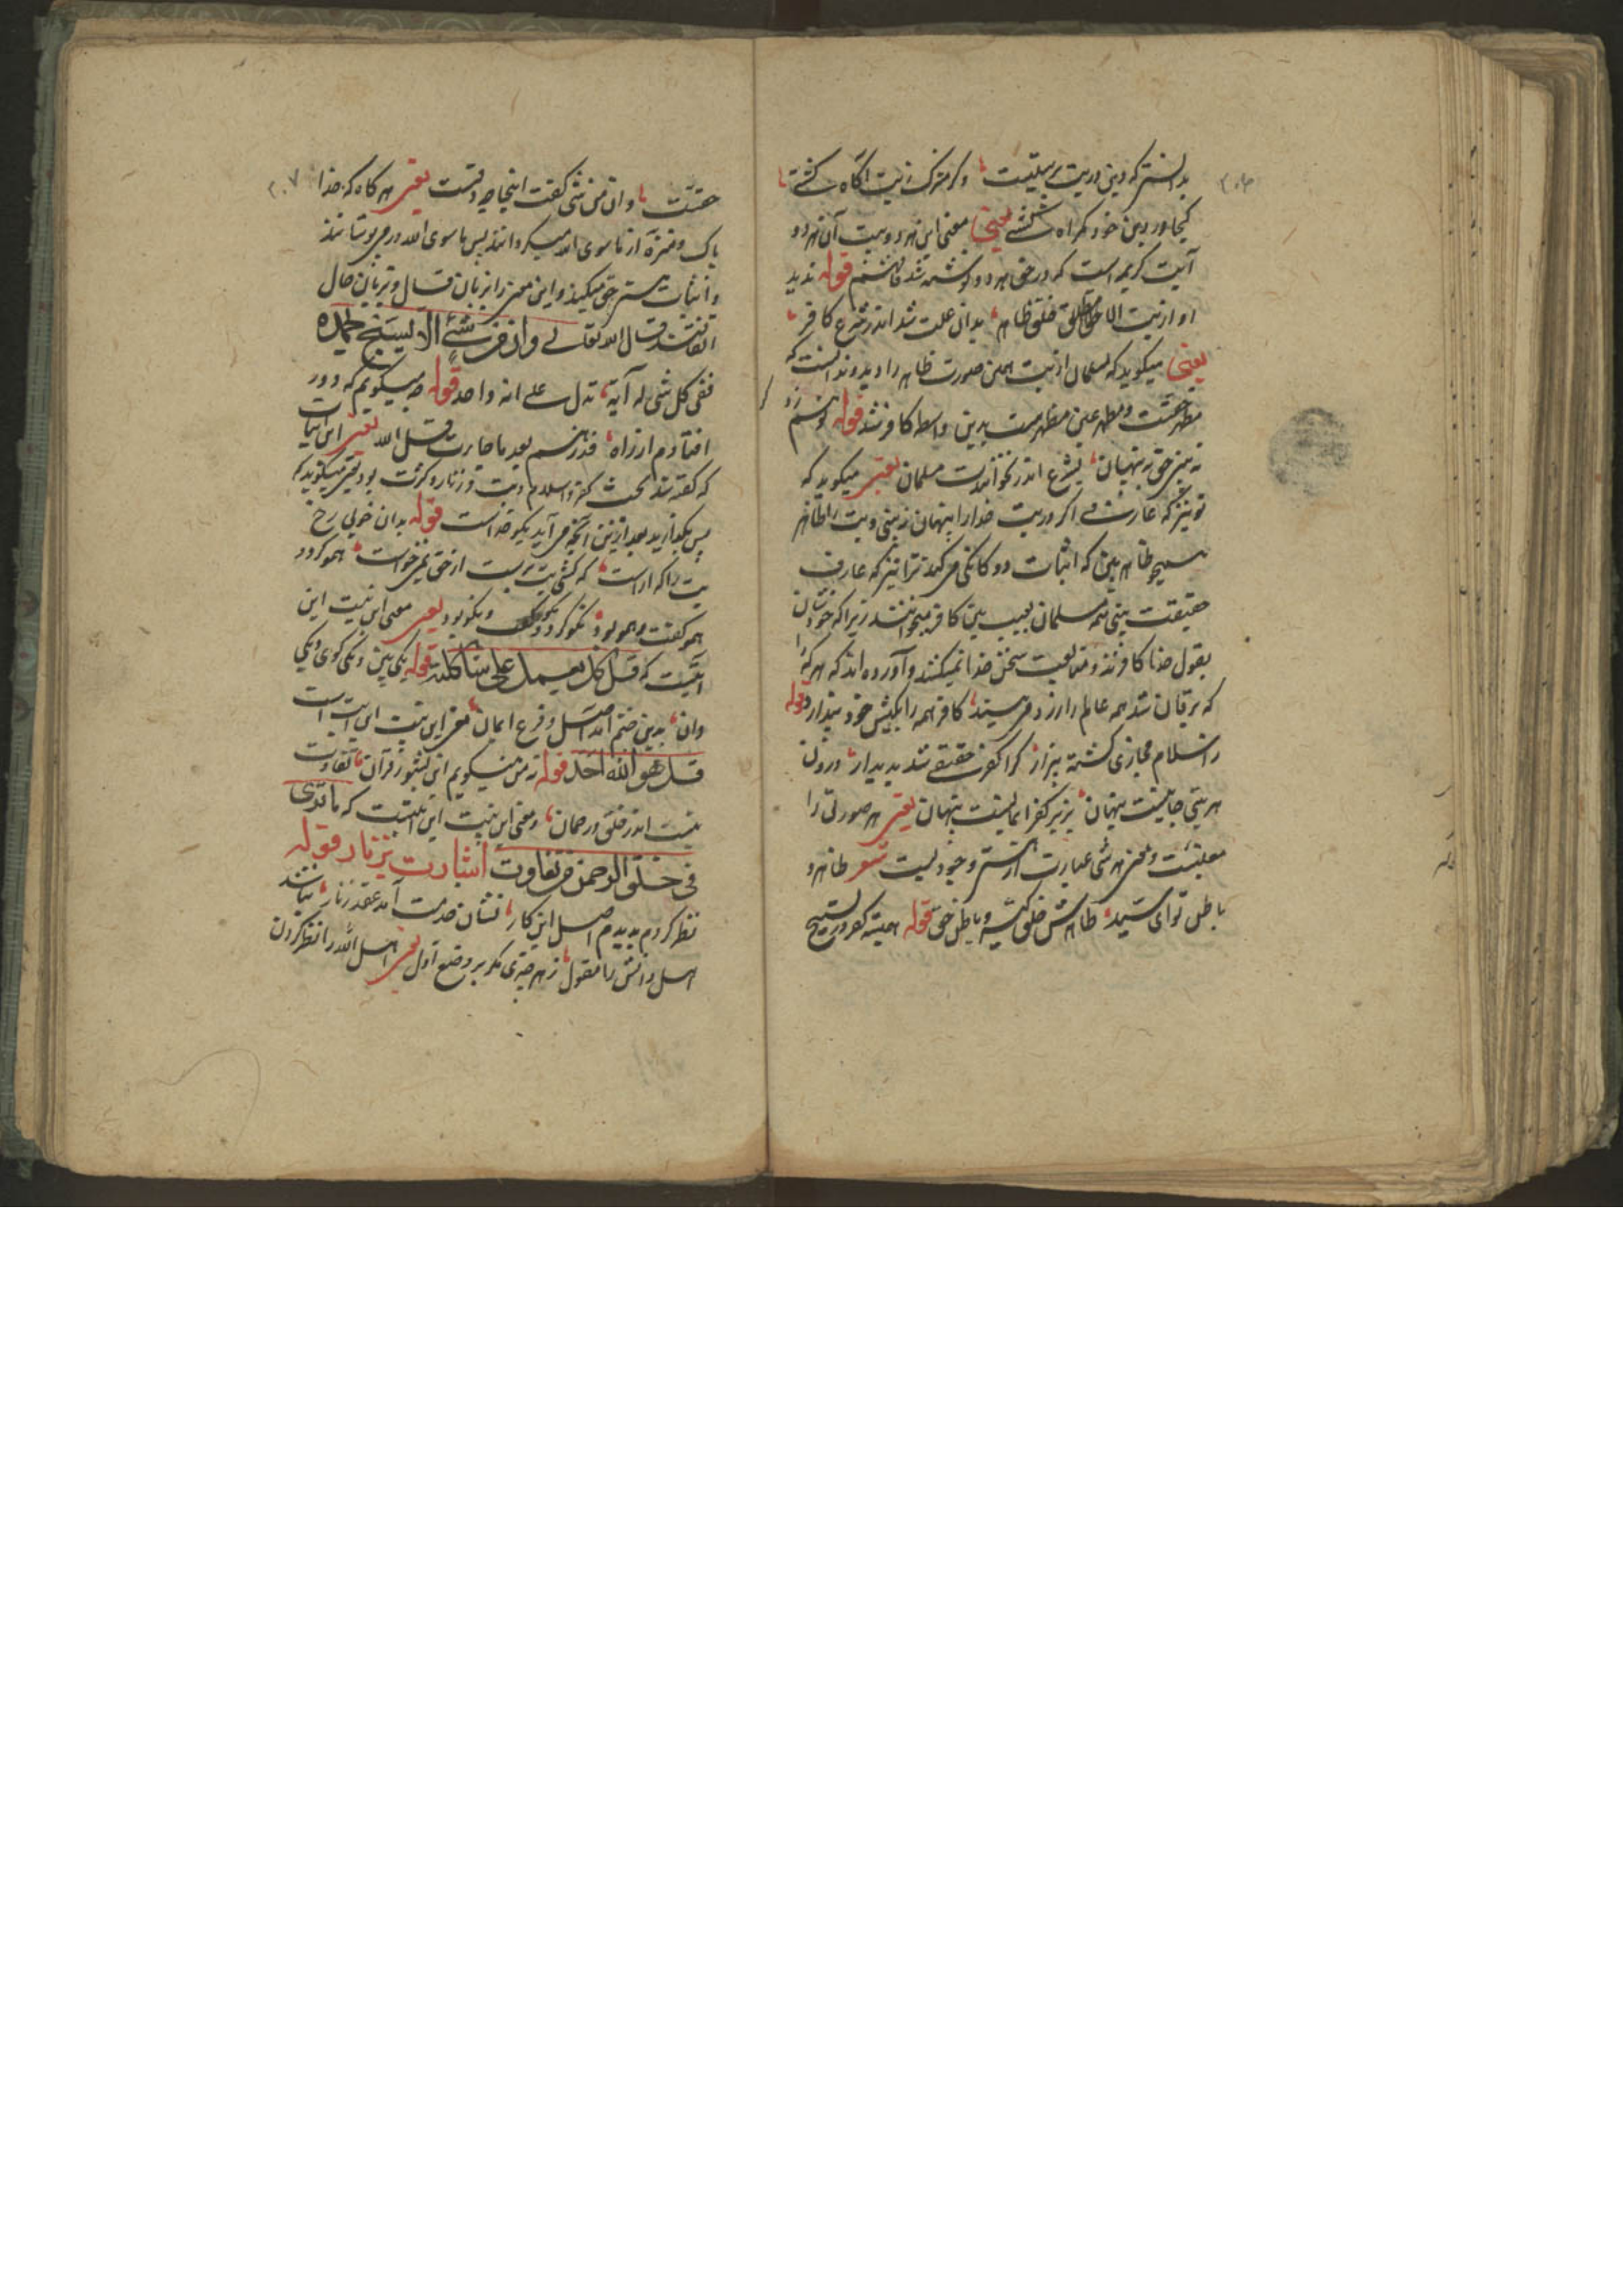 ۲۰۶
بدانستی که دین در بت پرستیست و گر مشرک ز بت آگاه گشتی
کجا در دین خود گمراه گشتی یعنی معنی این هر دو بیت آن هر دو
آیت کریمه است که در حق هر دو نوشته شد فافهم قوله ندید
او از بت الا خلق ظاهر بدان علت شد اندر شرع کافر
یعنی میگوید که مسلمان از بت همین صورت ظاهر را دید و ندانست که
مظهر حقست و مظهر عین مظهرست بدین واسطه کافر شد قوله تو هم زو
نه بینی حق پنهان بشرع اندر نخوانندت مسلمان یعنی میگوید که
تو نیز که عارف اگر در بت خدا را پنهان نه بینی و بت را ظاهر
همچو ظاهر بین که اثبات دوگانگی میکند ترا نیز که عارف
حقیقت بینی نه مسلمان بحسب یقین کافر میخوانند زیرا که خودشان
بقول خدا کافرند و متابعت سخن خدا نمیکنند و آورده اند که هر که را
که یرقان شد همه عالم را زرد می بیند کافر همه را بکیش خود پندارد قوله
ز اسلام مجازی گشته بیزار کرا کفر حقیقی شد پدیدار درون
هر بتی جانیست پنهان بزیر کفر ایمانیست پنهان یعنی هر صورتی را
معنیست و معنی هر شی عبارت از سر وجودیست شعر ظاهر و
باطن توای سید ظاهرش خلق گشته و باطن حق قوله همیشه کفر در تسبیح
۲۰۷
حقست و ان من شی گفت اینجا چه دقست یعنی هر گاه که خدا
پاک و منزه از ماسوی الله میگردانند پس ماسوی الله در می پوشانند
و اثبات هستی حق میکنند و این معنی را بزبان قال و بزبان حال
گفتند قال الله تعالی وان من شئ الا یسبح بحمده
ففی کل شی له آیة تدل علی انه واحد قوله چه میگویم که دور
افتادم از راه فذرهم بعد ما جاءت قل الله یعنی این ابیات
که گفته شد بحث کفر و اسلام و بت و زنار و کثرت بود یعنی میگوید که
پس بگذارید بعد ازین آنچه می آید بگو خداست قوله بدان خوبی رخ
بت را که آراست که گشتی بت پرست ار حق نمیخواست همو کرد و
همو گفت و همو بود نکو کرد و نکو گفت و نکو بود یعنی معنی این بیت این
آیتست که قل کل یعمل علی شاکلته قوله یکی بین و یکی گوی و یکی
دان بدین ختم آمد اصل و فرع ایمان معنی این بیت این آیت است
قل هو الله احد قوله نه من میگویم این بشنو ز قرآن تفاوت
نیست اندر خلق رحمان و معنی این بیت این آیتست که ماتری
فی خلق الرحمن من تفاوت اشارت بزنار قوله
نظر کردم بدیدم اصل این کار نشان خدمت آمد عقد زنار نباشد
اهل دانش را معول ز هر چیزی مگر بر وضع اول یعنی اهل الله را نظر کردن